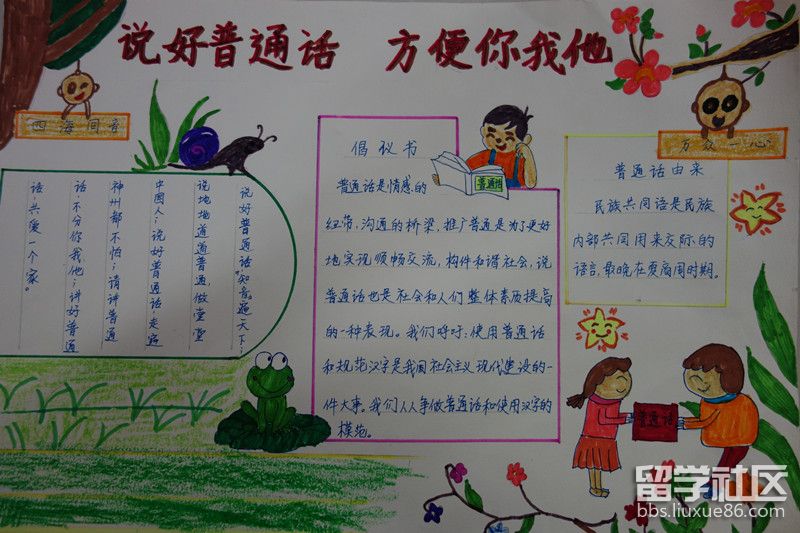 说好普通话 方便你我他
四海同音
万众一心
说好普通话,知音遍天下;
说地地道道普通话,做堂堂
中国人;说好普通话,走遍
神州都不怕;请讲普通
话,不分你我他;讲好普通
话,共爱一个家。
倡议书
普通话是情感的
纽带,沟通的桥梁,推广普通是为了更好
地实现顺畅交流,构件和谐社会,说
普通话也是社会和人们整体素质提高
的一种表现。我们呼吁:使用普通话
和规范汉字是我国社会主义现代建设的一
件大事。我们人人争做普通话和使用汉字的
模范。
普通话
普通话由来
民族共同语是民族
内部共同用来交际的
语言,最晚在夏商周时期。
普通话
留学社区
bbs.liuxue86.com